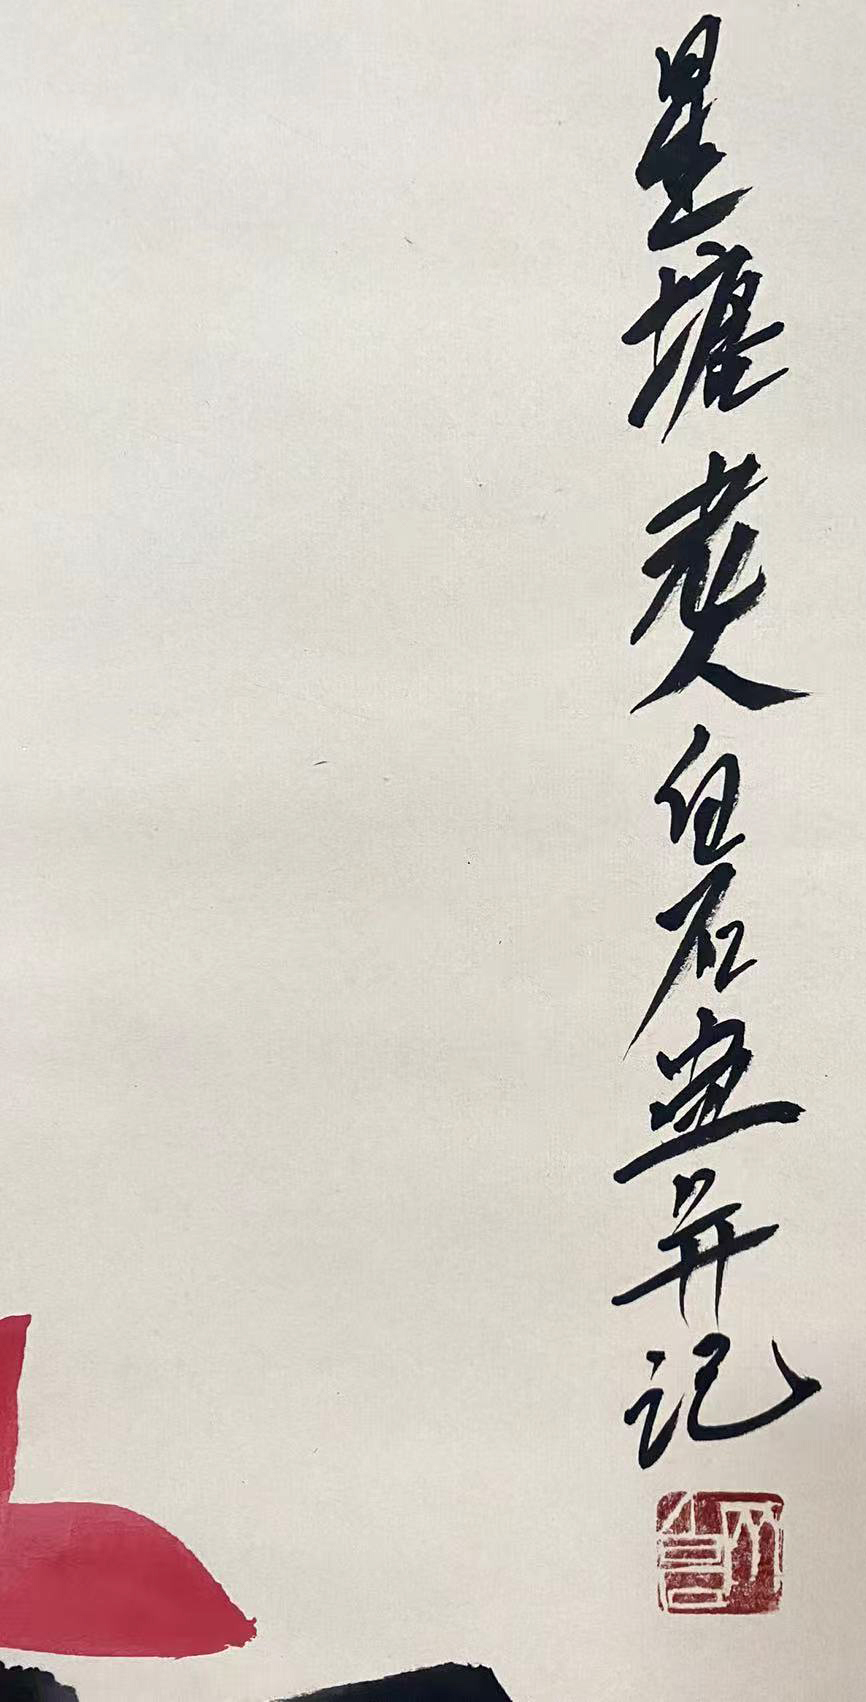 星塘老人白石画并记